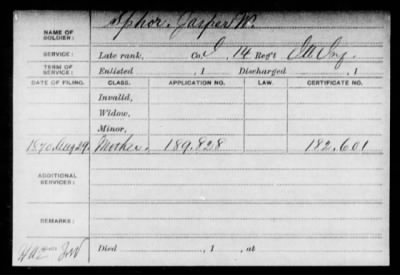 NAME OF SOLDIER: Jasper W.
SERVICE: Late rank, Co. I, 14 Reg't Ill. Inf.
TERM OF SERVICE: Enlisted , 1 Discharged , 1
DATE OF FILING. CLASS. APPLICATION NO. LAW. CERTIFICATE NO.
Invalid,
Widow,
Minor,
1870 Aug 29. Mother. 189.828 182.601
ADDITIONAL SERVICES:
REMARKS:
Died , 1 , at